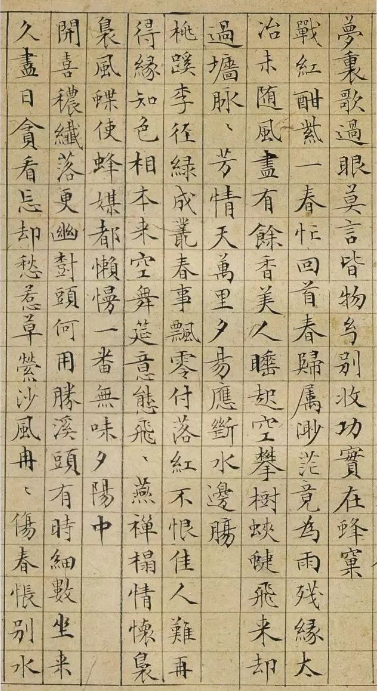 夢裏歌過眼莫言皆物幻別收功實在蜂窠
戰紅酣紫一春忙回首春歸屬渺茫竟為雨殘緣太
冶未随風盡有餘香美人睡起空攀樹蛺蝶飛来却
過墻脉〻芳情天萬里夕昜應斷水邊膓
桃蹊李徑綠成叢春事飄零付落紅不恨佳人難再
得緣知色相本来空舞筵意態飛〻燕禪榻情懷裊
裊風蝶使蜂媒都懶慢一番無味夕陽中
開喜穠纖落更幽樹頭何用勝溪頭有時細數坐来
久盡日貪看忘却愁惹草縈沙風冉〻傷春悵別水